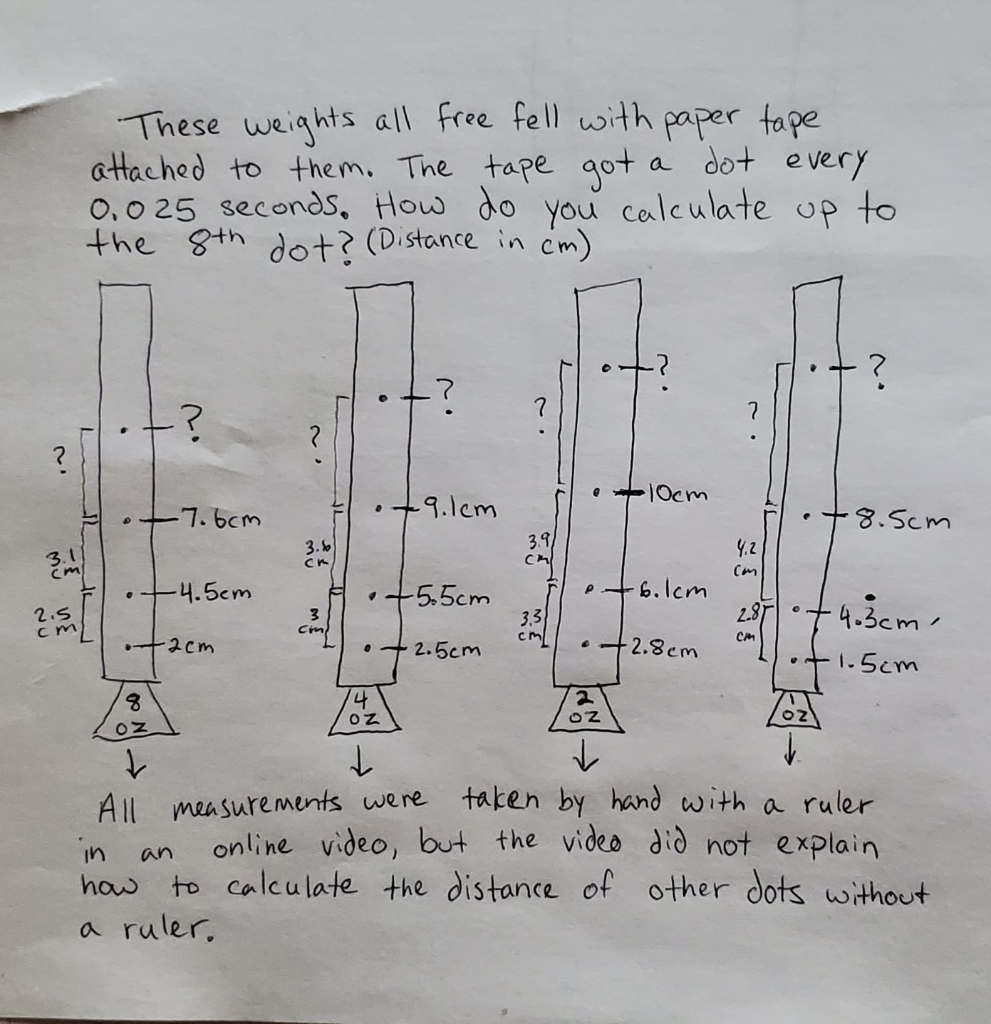 These weights all free fell with paper tape
attached to them. The tape got a dot every
0.025 seconds. How do you calculate up to
the 8th dot? (Distance in cm)
?
?
7.6cm
3.1
cm
4.5cm
2.5
cm
2cm
8
oz
?
?
9.1cm
3.6
cm
5.5cm
3
cm
2.5cm
4
oz
?
?
10cm
3.9
cm
6.1cm
3.3
cm
2.8cm
2
oz
?
?
8.5cm
4.2
cm
4.3cm
2.8
cm
1.5cm
1
oz
All measurements were taken by hand with a ruler
in an online video, but the video did not explain
how to calculate the distance of other dots without
a ruler.